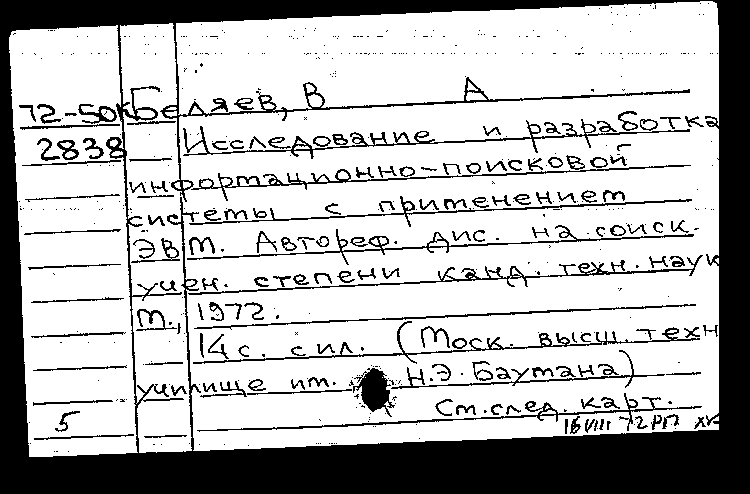 72-50к Беляев, В А
2838 Исследование и разработка
информационно-поисковой
системы с применением
ЭВМ. Автореф. дис. на соиск.
учен. степени канд. техн. наук
М., 1972.
14 с. с ил. (Моск. высш. техн
училище им. Н.Э. Баумана)
См. след. карт.
5 16 VIII 72 РП